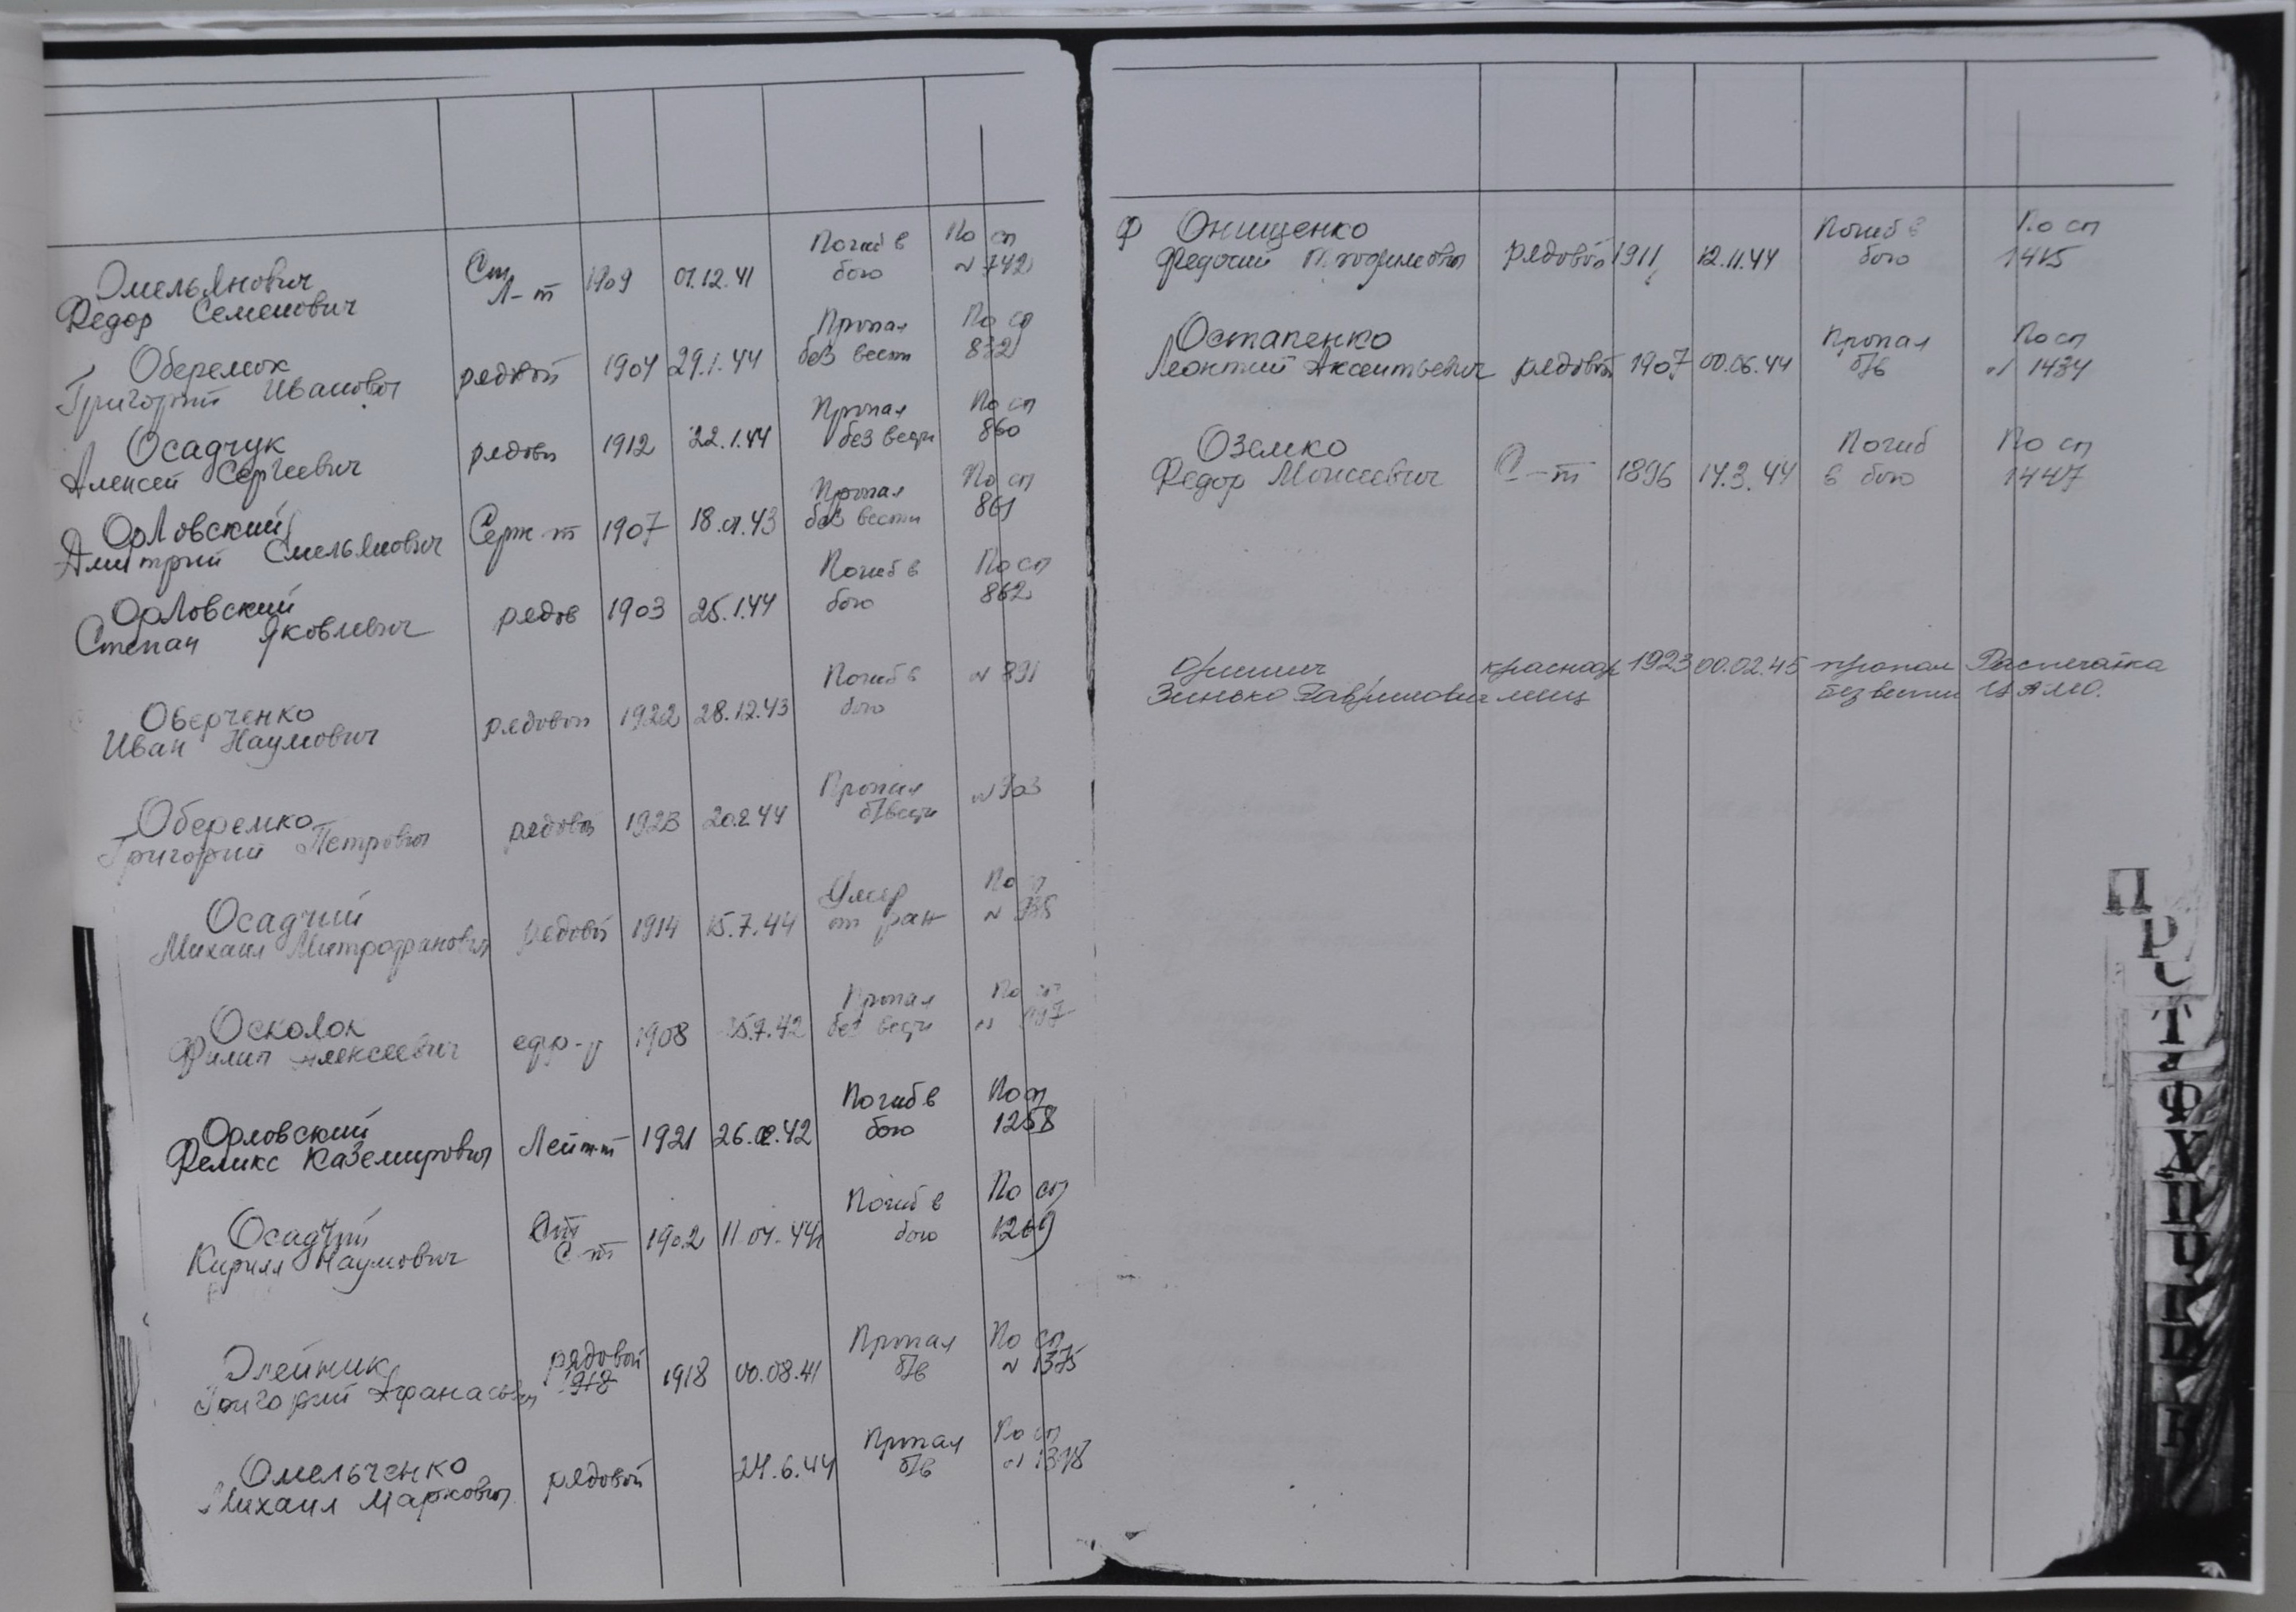 Омельянович Ст. 1909 01.12.41 Погиб в По сп
Федор Семенович Л-т бою № 742
Оберемок рядовой 1904 29.1.44 Пропал По сп
Григорий Иванович без вести 832
Осадчук рядов 1912 22.1.44 Пропал По сп
Алексей Сергеевич без вести 860
Орловский Серж-т 1907 18.01.43 Пропал По сп
Дмитрий Емельянович без вести 861
Орловский рядов 1903 25.1.44 Погиб в По сп
Степан Яковлевич бою 862
Оверченко рядовой 1922 28.12.43 Погиб в № 891
Иван Наумович бою
Оберемко рядовой 1923 20.2.44 Пропал № 903
Григорий Петрович б/вести
Осадчий рядовой 1914 15.7.44 Умер По
Михаил Митрофанович от ран №
Осколок ефр-р 1908 Пропал По сп
Филип Алексеевич без вести №
Орловский Лейт-т 1921 26.02.42 Погиб в По сп
Феликс Каземирович бою 1258
Осадчий Ст 1902 11.01.44 Погиб в По сп
Кирилл Наумович С-т бою 1269
Олейник рядовой 1918 00.08.41 Пропал По сп
Григорий Афанасьевич 1918 б/в № 1375
Омельченко рядовой 24.6.44 Пропал По сп
Михаил Маркович б/в №
Ф Онищенко рядовой 1911 12.11.44 Погиб в По сп
бою 1415
Остапенко рядовой 1907 00.06.44 Пропал По сп
Леонтий Аксентьевич б/в № 1434
Оземко С-т 1896 14.3.44 Погиб По сп
Федор Моисеевич в бою 1447
красноар 1923 00.02.45 пропал Распечатка
Зинько Гаврилович меец без вести ЦАМО.
П
Р
С
Т
Ф
Х